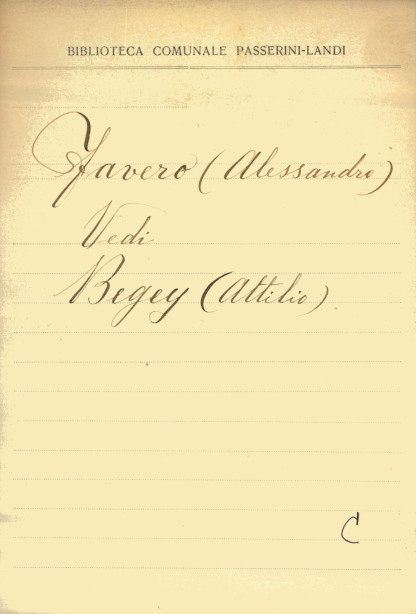 BIBLIOTECA COMUNALE PASSERINI-LANDI
Favero (Alessandro)
Vedi
Begey (Attilio)
C